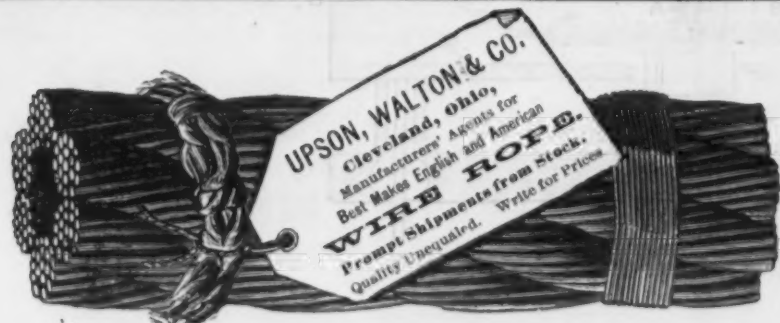 UPSON, WALTON & CO.
Cleveland, Ohio,
Manufacturers' Agents for
Best Makes English and American
WIRE ROPE.
Prompt Shipments from Stock.
Quality Unequaled. Write for Prices